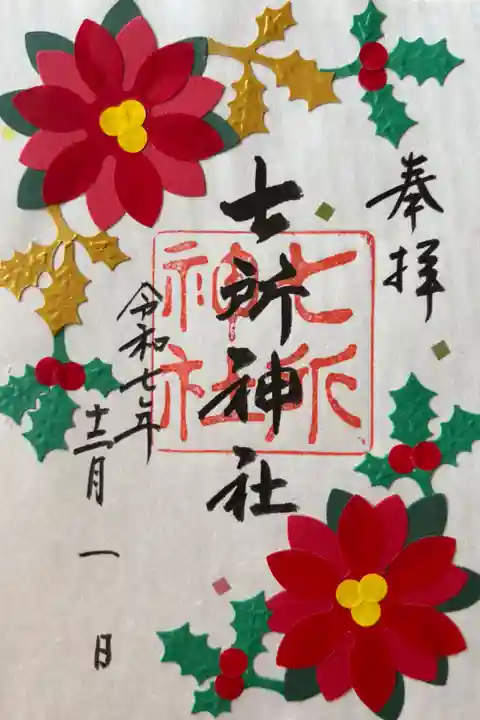 奉拝
七所神社
七所神社
令和七年
十二月一日